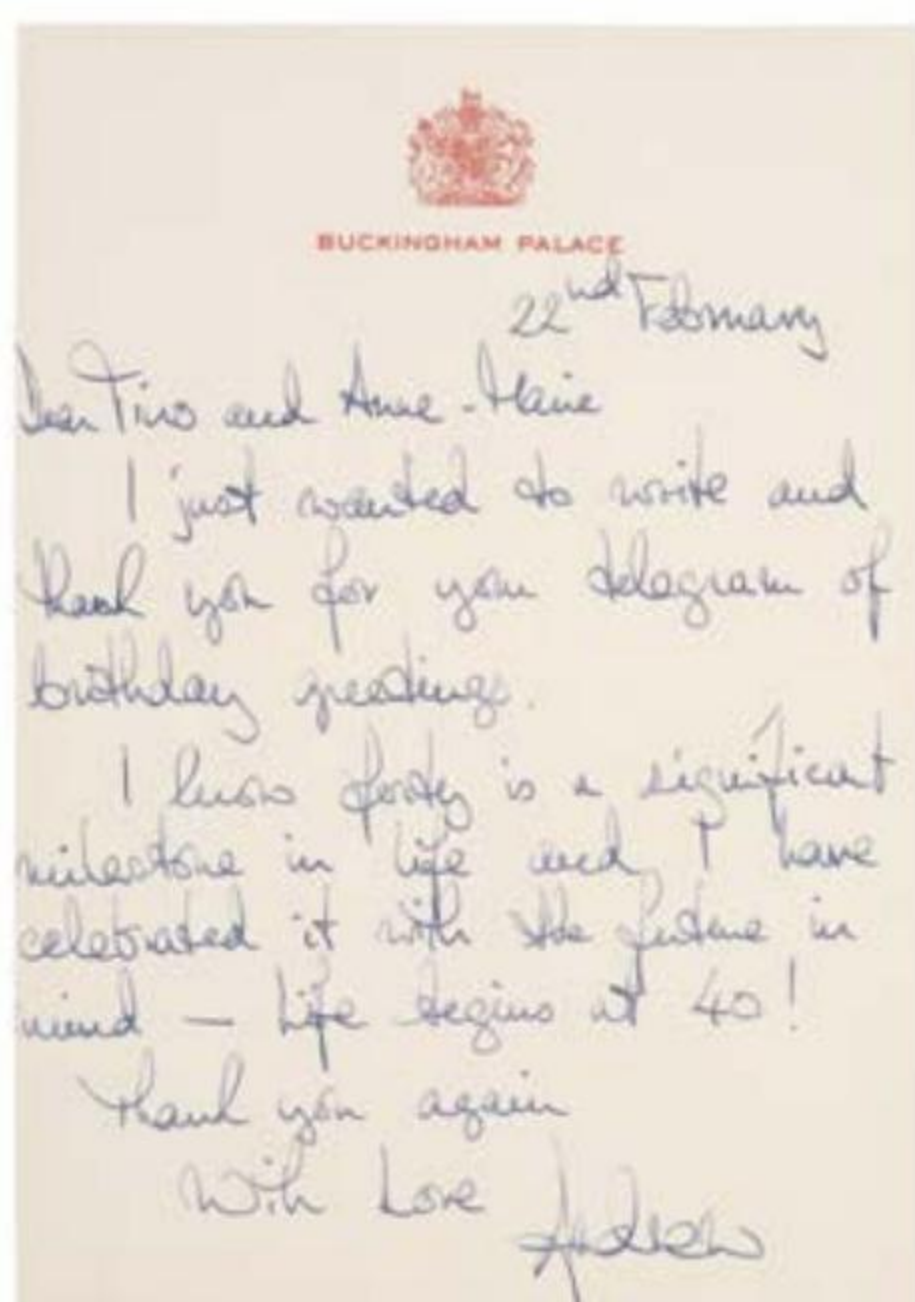 BUCKINGHAM PALACE
22nd February
Dear Tino and Anne-Marie
I just wanted to write and
thank you for your telegram of
birthday greetings.
I know forty is a significant
milestone in life and I have
celebrated it with the future in
mind — Life begins at 40!
Thank you again
With Love
Andrew